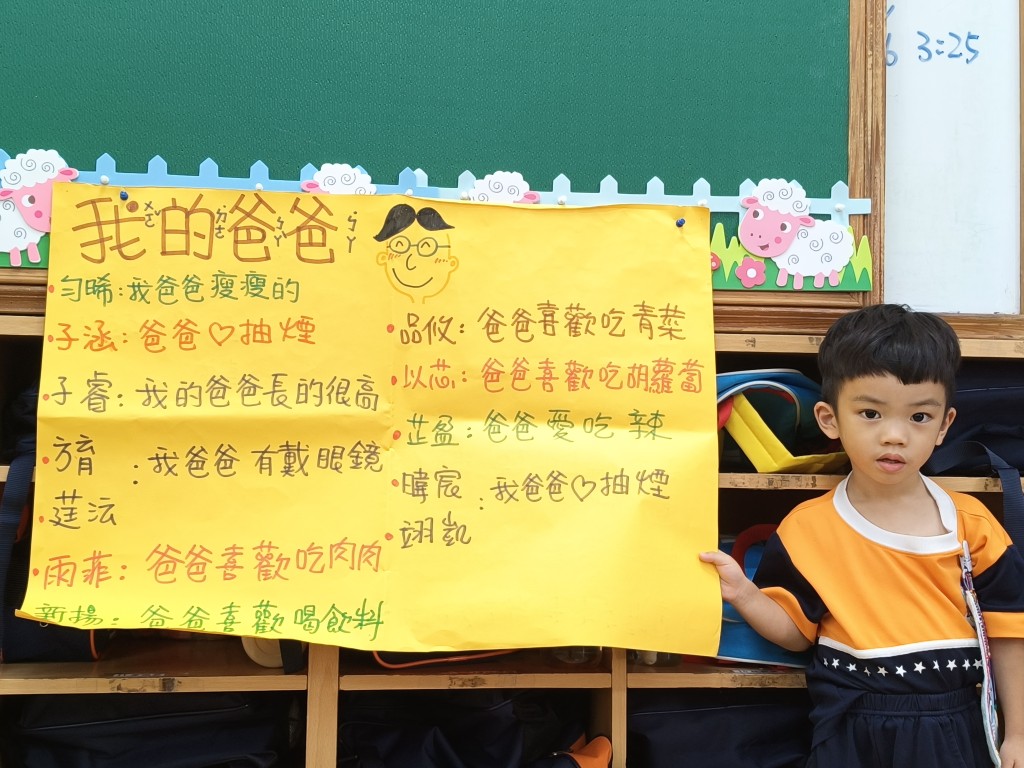 我的爸爸
ㄨㄛˇ ㄉㄜ˙ ㄅㄚˋ ㄅㄚ
勻晞：我爸爸瘦瘦的
子涵：爸爸♡抽煙
子睿：我的爸爸長的很高
方育
莛沄：我爸爸有戴眼鏡
雨菲：爸爸喜歡吃肉肉
新揚：爸爸喜歡喝飲料
品攸：爸爸喜歡吃青菜
以芯：爸爸喜歡吃胡蘿蔔
芷盈：爸爸愛吃辣
暐宸
翊凱：我爸爸♡抽煙
3:25